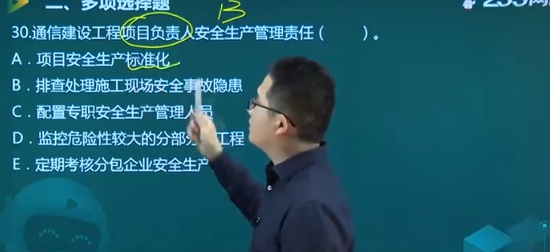 二、多项选择题
13
30.通信建设工程项目负责人安全生产管理责任（　　）。
A．项目安全生产标准化
B．排查处理施工现场安全事故隐患
C．配置专职安全生产管理人员
D．监控危险性较大的分部分　工程
E．定期考核分包企业安全生产